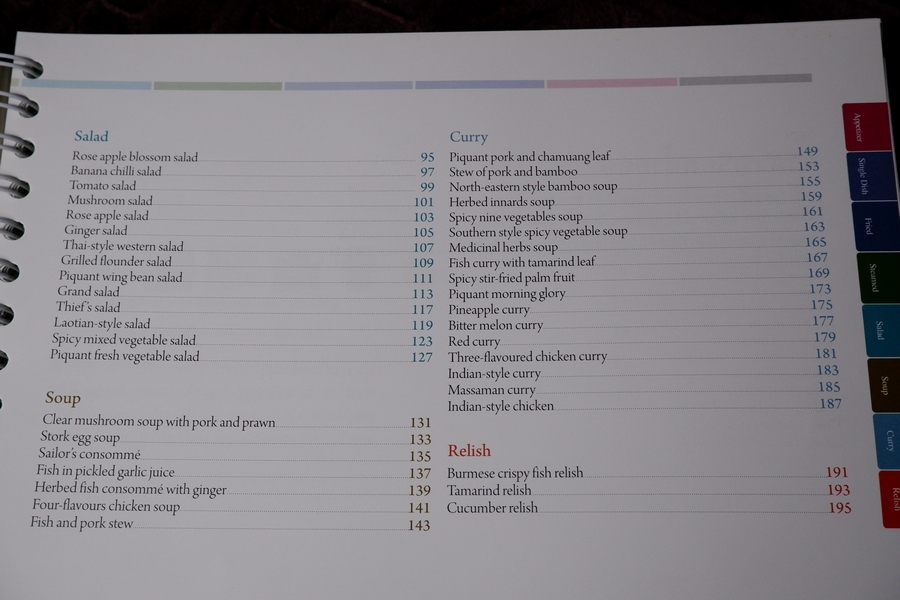 Salad
Rose apple blossom salad 95
Banana chilli salad 97
Tomato salad 99
Mushroom salad 101
Rose apple salad 103
Ginger salad 105
Thai-style western salad 107
Grilled flounder salad 109
Piquant wing bean salad 111
Grand salad 113
Thief's salad 117
Laotian-style salad 119
Spicy mixed vegetable salad 123
Piquant fresh vegetable salad 127
Soup
Clear mushroom soup with pork and prawn 131
Stork egg soup 133
Sailor's consommé 135
Fish in pickled garlic juice 137
Herbed fish consommé with ginger 139
Four-flavours chicken soup 141
Fish and pork stew 143
Curry
Piquant pork and chamuang leaf 149
Stew of pork and bamboo 153
North-eastern style bamboo soup 155
Herbed innards soup 159
Spicy nine vegetables soup 161
Southern style spicy vegetable soup 163
Medicinal herbs soup 165
Fish curry with tamarind leaf 167
Spicy stir-fried palm fruit 169
Piquant morning glory 173
Pineapple curry 175
Bitter melon curry 177
Red curry 179
Three-flavoured chicken curry 181
Indian-style curry 183
Massaman curry 185
Indian-style chicken 187
Relish
Burmese crispy fish relish 191
Tamarind relish 193
Cucumber relish 195
Appetizer
Single Dish
Fried
Steamed
Salad
Soup
Curry
Relish